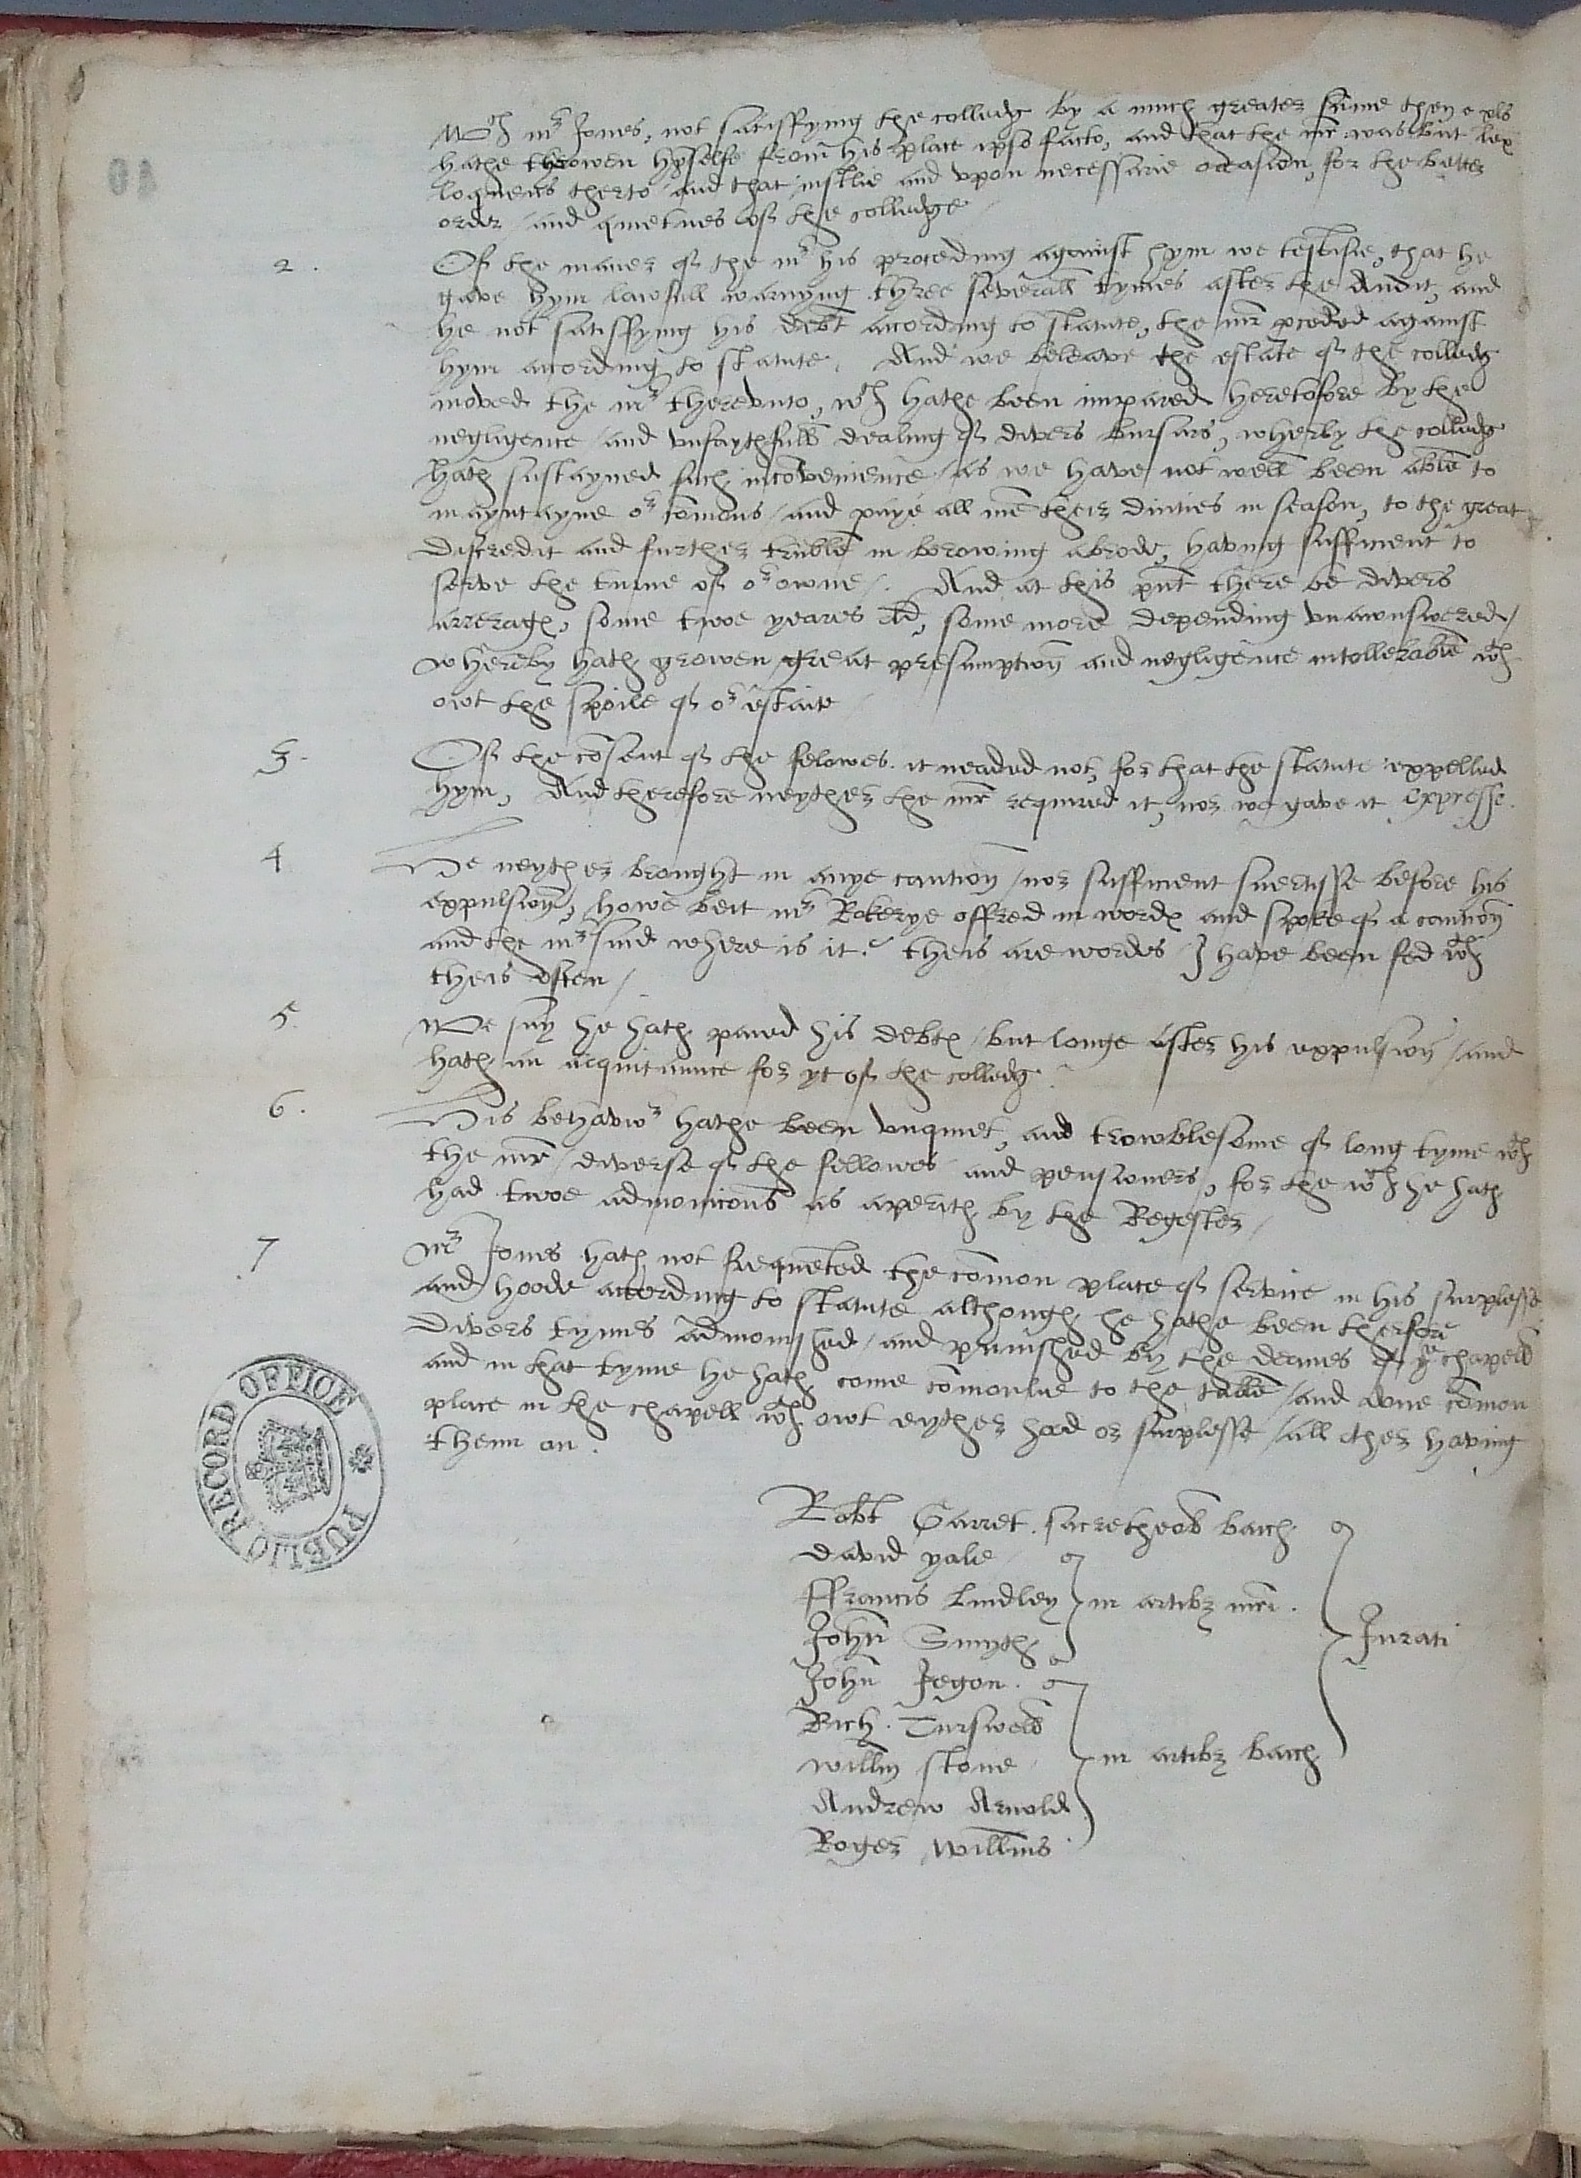 wch mr Jones, not satisfying the colledg by a much greater sume then xls
hathe throwen hymselfe from his place ipso facto, and that the mr was but lex
loquens therto and that iustlie and vpon necessarie ocasion, for the better
order and quietnes of the colledge
2. Of the maner of the mr his proceding against hym we testifie, that he
gave hym lawfull warnyng three severall tymes after the Audit, and
he not satisffying his debt acording to statute, the mr pceded against
hym acording to statute. And we beleave the estate of the colledg
moved the mr therevnto, wch hathe been impared heretofore by the
negligence and vnfaythfull dealing of divers bursars, wherby the colledg
hath sustayned such incōvenience as we have not well been able to
mayntayne or cōmons and paye all mē their duties in season, to the great
discredit and further truble in borowing abrode, having sufficient to
serve the turne of or owne. And at this pnt there be divers
arreragꝭ, some twoe yeares old, some more depending vnawnswered /
whereby hath growen great presumption and negligence intollerable wth
owt the spoile of or estate
3. Of the cōsent of the felowes it neaded not, for that the statute expelled
hym, And therefore neyther the mr required it, nor we gave it expresse.
4 He neyther brought in anye caution / nor sufficient suertisse before his
expulsion, howe beit mr Rokerye offred in wordꝭ and spoke of a caution
and the mr said where is it? theis are wordes I have been fed wth
theis often /
5. We say he hath paied his debtꝭ / but longe after his expulsion / and
hath an acquitaunce for yt of the colledg
6. His behavior hathe been vnquiet, and trowblesome of long tyme wth
the mr / diverse of the fellowes and pensioners, for the wch he hath
had twoe admonicons as aperith by the Regester /
7 Mr Jones hath not frequēted the cōmon place of service in his surplesse
and hoode according to statute although he hathe been therfore
divers tymes admonished / and punished by the deanes of ye chapell
and in that tyme he hath come cōmonlie to the table / and done cōmon
place in the chapell wth owt eyther hod or surplesse / all other having
them on.
Robt Garret. sacre theol bach.
David yale
ffrancis Lindley in artibz mri.
John Smyth
Jurati
John Jegon.
Rich. Turswell
willm stone in artibz bach
Andrew Arnold
Roger willms
PUBLIC RECORD OFFICE